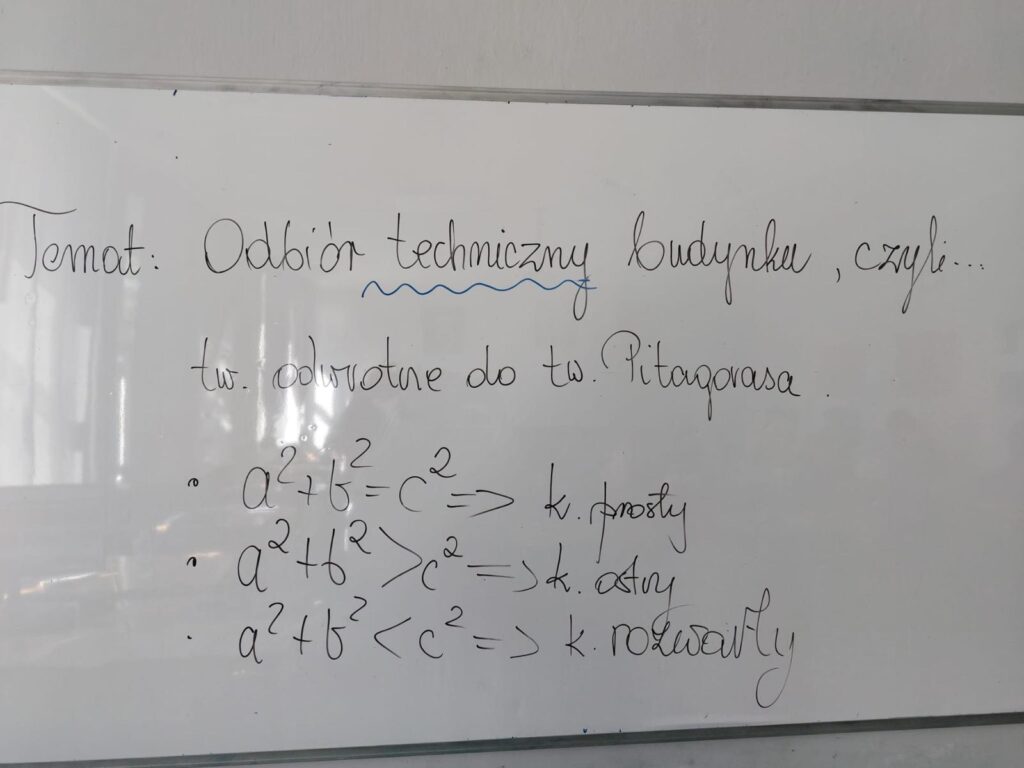 Temat: Odbiór techniczny budynku, czyli...
tw. odwrotne do tw. Pitagorasa.
• a²+b²=c² => k. prosty
• a²+b²>c² => k. ostry
• a²+b²<c² => k. rozwarty